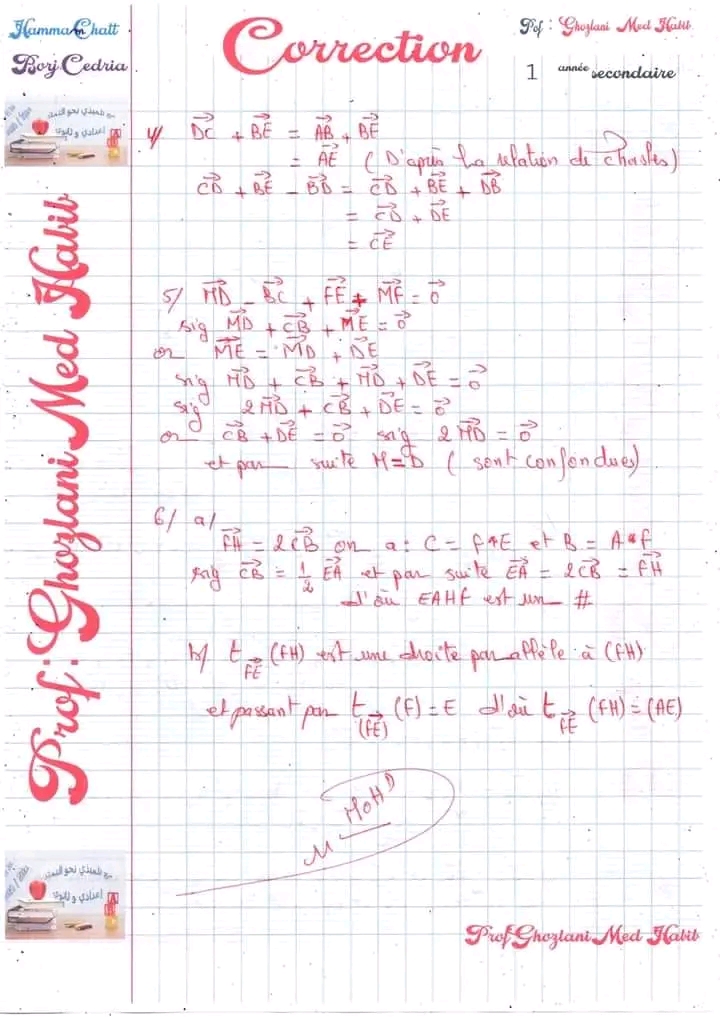 Hamman Chatt
Borj Cedria
Correction
Pof : Ghozlani Med Habib
1 année secondaire
Prof : Ghozlani Med Habib
4/ DC→ + BE→ = AB→ + BE→
= AE→ ( D'après la relation de chasles)
CD→ + BE→ - BD→ = CD→ + BE→ + DB→
= CD→ + DE→
= CE→
5/ MD→ - BC→ + FE→ + MF→ = 0→
sig MD→ + CB→ + ME→ = 0→
or ME→ = MD→ + DE→
sig MD→ + CB→ + MD→ + DE→ = 0→
sig 2MD→ + CB→ + DE→ = 0→
or CB→ + DE→ = 0→ sig 2MD→ = 0→
et par suite M=D ( sont confondues)
6/ a/
FH→ = 2CB→ on a : C = F*E et B = A*F
sig CB→ = 1/2 EA→ et par suite EA→ = 2CB→ = FH→
d'où EAHF est un #
b/ t FE→ (FH) est une droite parallèle à (FH)
et passant par t (FE→) (F) = E d'où t FE→ (FH) = (AE)
M MOHD
Prof Ghozlani Med Habib